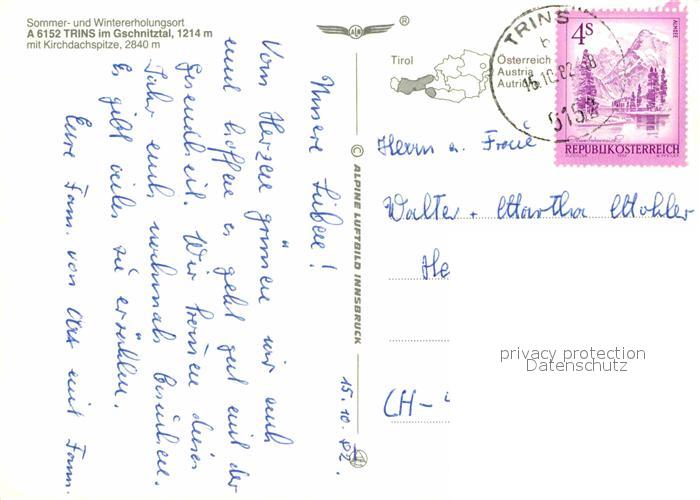 Sommer- und Wintererholungsort
A 6152 TRINS im Gschnitztal, 1214 m
mit Kirchdachspitze, 2840 m
®
Tirol
Österreich
Austria
Autriche
TRINS
15.10.82
6152
4S
ALMSEE
REPUBLIK ÖSTERREICH
© ALPINE LUFTBILD INNSBRUCK
15. 10. 82.
Unsere Lieben!
Vom Herzen grüssen wir euch
und hoffen es geht gut mit der
Gesundheit. Wir kommen dieses
Jahr euch nochmals besuchen.
Es gibt vieles zu erzählen.
Eure Fam. von mit Fam.
Herrn u. Frau
Walter + Martha Mohler
He
CH-
privacy protection
Datenschutz